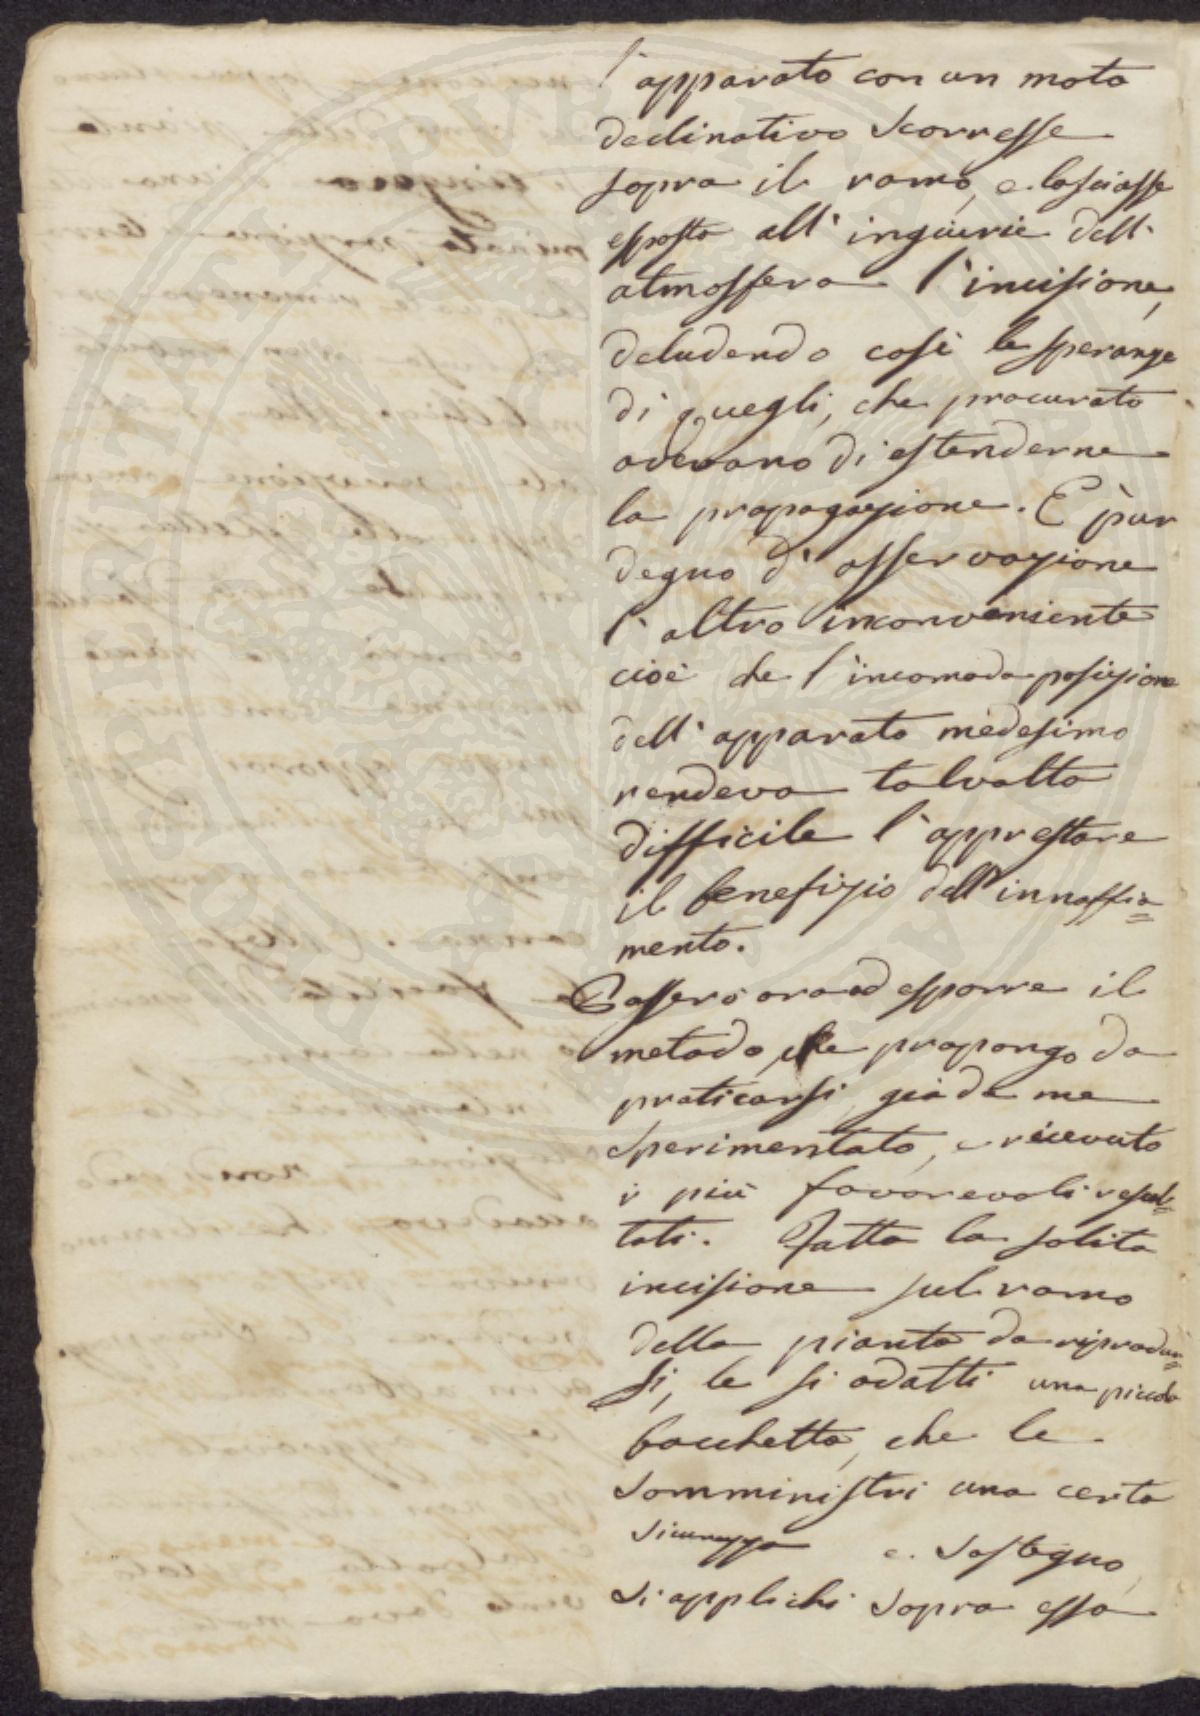 l'apparato con un moto
declinativo scorresse
sopra il ramo, e lasciasse
esposto all'ingiurie dell'
atmosfera l'incisione,
deludendo così le speranze
di quegli, che procurato
avevano di estenderne
la propagazione. È pur
degno d'osservazione
l'altro inconveniente
cioè che l'incomoda posizione
dell'apparato medesimo
rendeva talvolta
difficile l'apprestare
il benefizio dell'innaffia=
mento.
Passerò ora ad esporre il
metodo, che propongo da
praticarsi, già da me
sperimentato, e ricevuto
i più favorevoli resul=
tati. Fatta la solita
incisione sul ramo
della pianta da riprodur=
si, le si adatti una piccola
bacchetta, che le
somministri una certa
sicurezza e sostegno,
si applichi sopra essa